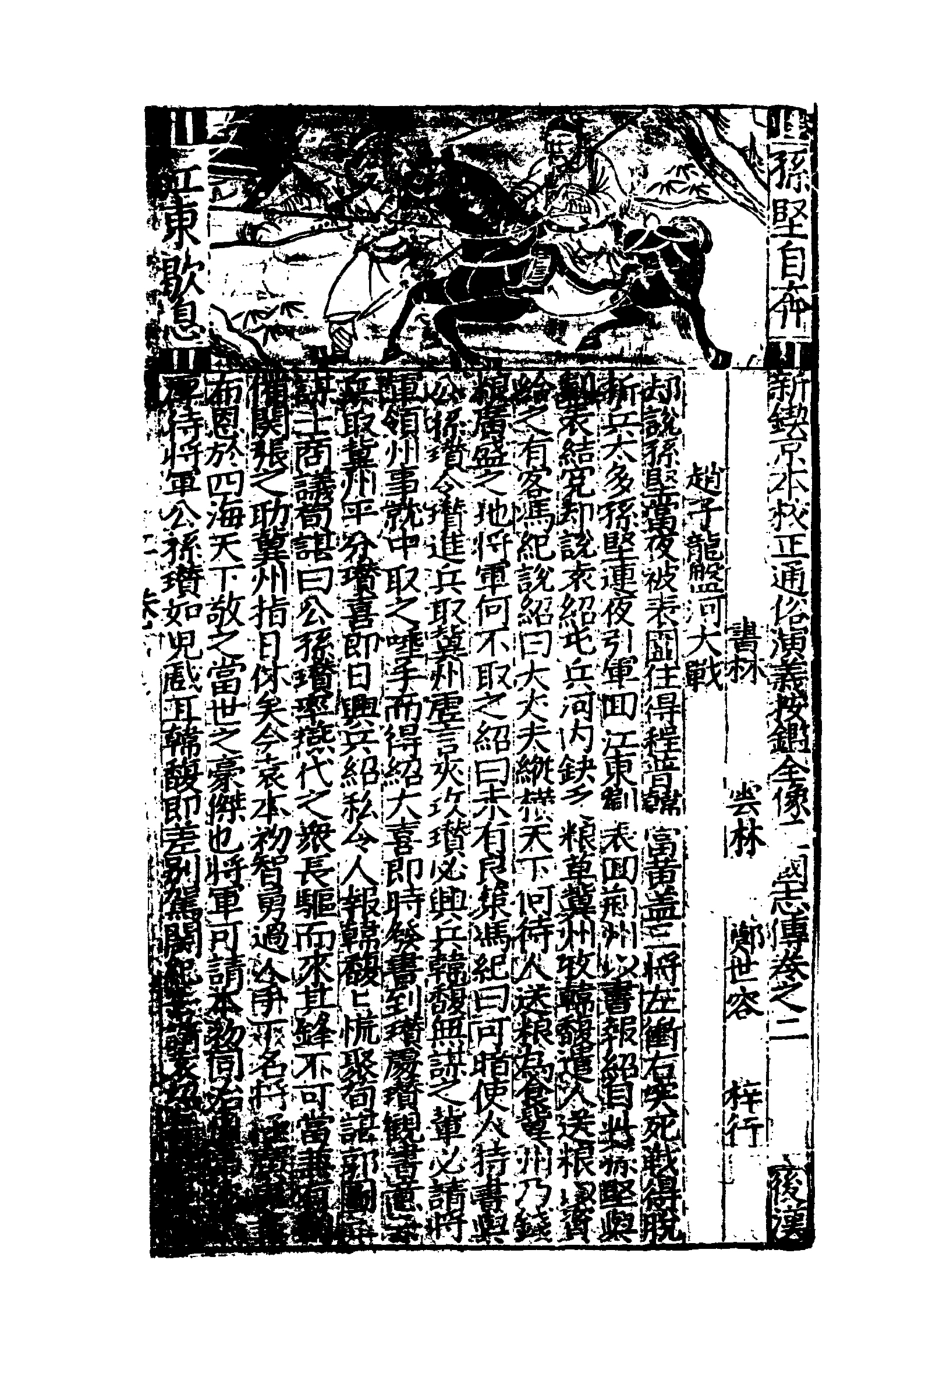 孫堅自奔
江東歇息
新鍥京本校正通俗演義按鑑全像三國志傳卷之二
後漢
書林 雲林 鄭世容 梓行
趙子龍盤河大戰
却說孫堅當夜被表圍住得程普韓當黃蓋三將左衝右突死戰得脫
折兵太多孫堅連夜引軍回江東劉表回荊州以書報紹自此孫堅與
劉表結冤却說袁紹屯兵河內缺少粮草冀州牧韓馥遣人送粮以資
給之有客馮紀說紹曰大丈夫縱橫天下何待人送粮為食冀州乃錢
粮廣盛之地將軍何不取之紹曰未有良策馮紀曰可暗使人持書與
公孫瓚令瓚進兵取冀州虛言夾攻瓚必興兵韓馥無謀之輩必請將
軍領州事就中取之唾手而得紹大喜即時發書到瓚處瓚觀書意云
兵取冀州平分瓚喜即日興兵紹私令人報韓馥馥慌聚荀諶郭圖二
謀士商議荀諶曰公孫瓚率燕代之眾長驅而來其鋒不可當兼有劉
備關張之助冀州指日休矣今袁本初智勇過人手下名將極廣
布恩於四海天下敬之當世之豪傑也將軍可請本初同治
厚待將軍公孫瓚如兒戲耳韓馥即差別駕關紀去請袁紹